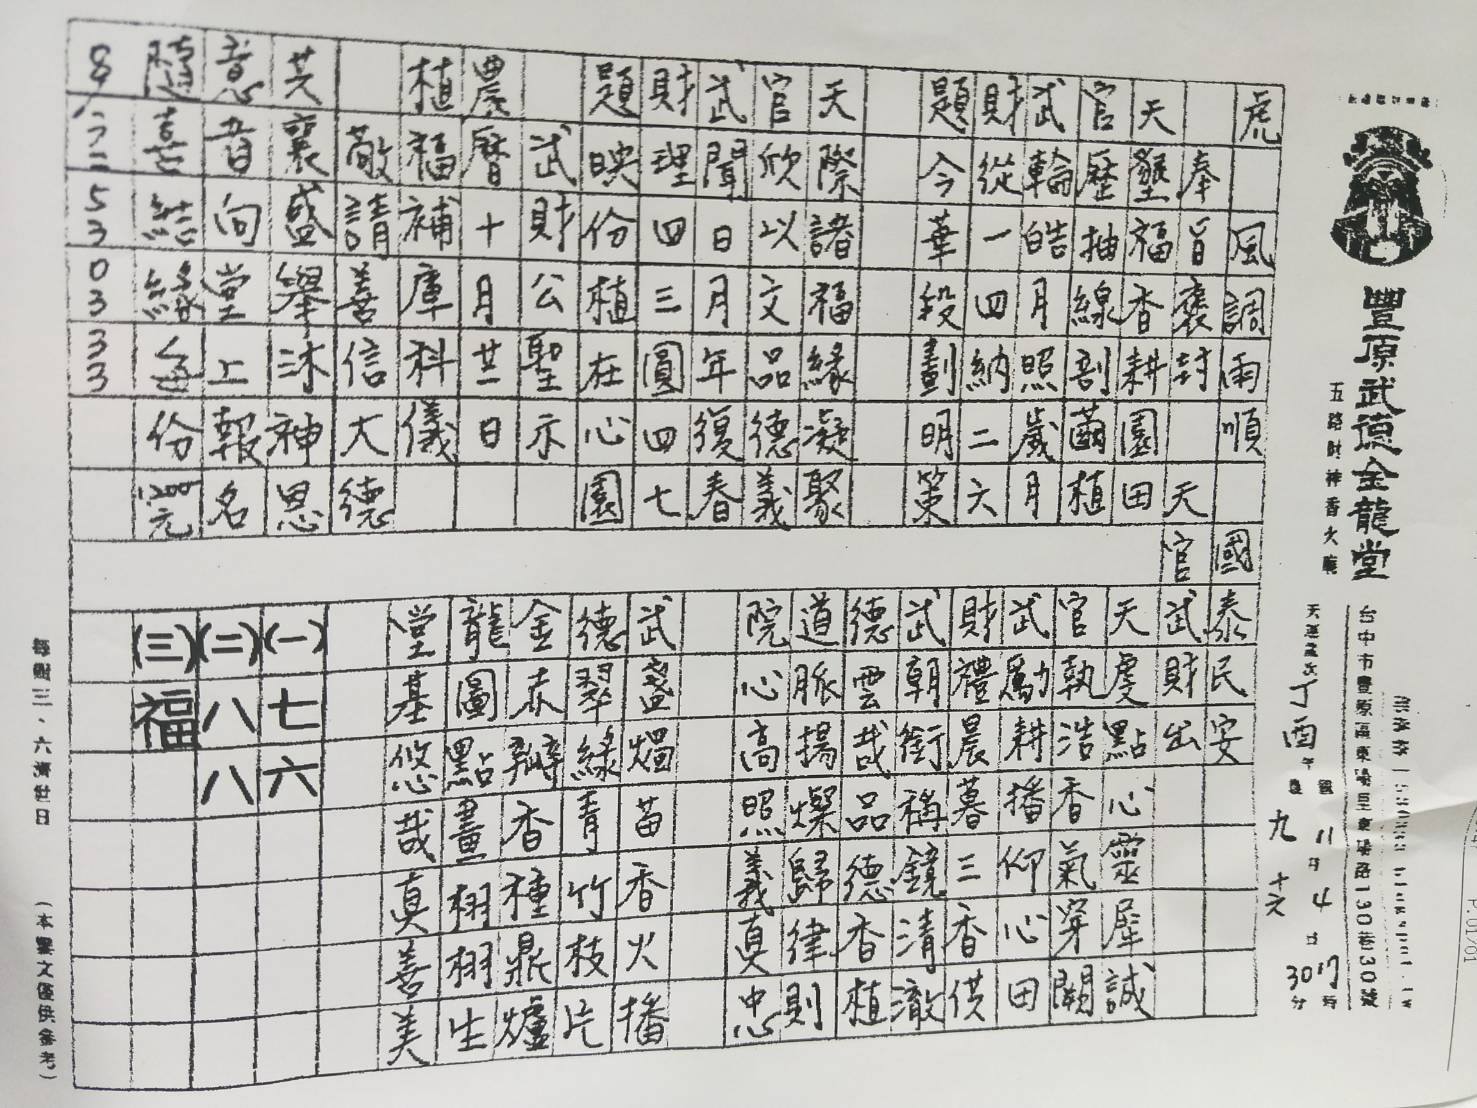 豐原武德金龍堂
五路財神香火廳
台中市豐原區東陽里東陽路130巷30號
天運歲次丁酉年 國11月4日17時30分
農九 十六
虎
風調雨順 國泰民安
奉旨褒封 天官武財出
天鑾福香耕園田
官歷抽線剖繭植
武輪皓月照歲月
財從一四納二六
題今華段劃明策
天虔點心靈犀誠
官執浩香氣穿闕
武勵耕播仰心田
財禮晨暮三香供
武朝銜稱鏡清澈
德雲哉品德香植
道脈揚燦歸律則
院心高照義真忠
天際諸福緣凝聚
官欣以文品德義
武聞日月年復春
財理四三圓四七
題映份植在心園
武財公聖示
農曆十月廿日
植福補庫科儀
敬請善信大德
共襄盛舉沐神恩
意者向堂上報名
隨喜結緣每份1200元
武盞燭苗香火播
德翠綠青竹枝片
金赤香種鼎爐
龍圖點畫栩栩生
堂基悠哉真善美
(一)七六
(二)八八
(三)福
每週三、六濟世日
(本鸞文僅供參考)